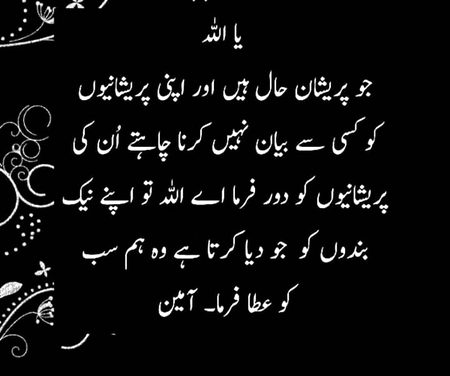 یا اللہ
جو پریشان حال ہیں اور اپنی پریشانیوں
کو کسی سے بیان نہیں کرنا چاہتے اُن کی
پریشانیوں کو دور فرما اے اللہ تو اپنے نیک
بندوں کو جو دیا کرتا ہے وہ ہم سب
کو عطا فرما۔ آمین